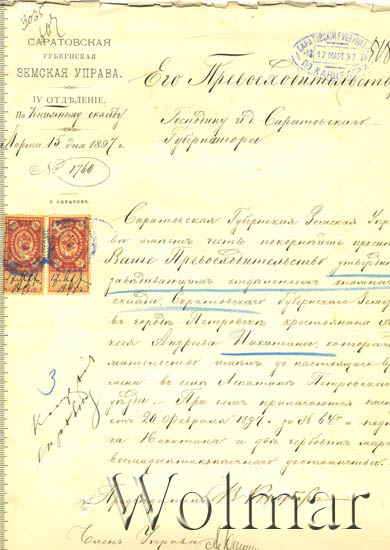 3035
САРАТОВСКАЯ
ГУБЕРНСКАЯ
ЗЕМСКАЯ УПРАВА.
IV ОТДѢЛЕНІЕ.
По Книжному складу
Марта 15 дня 1897 г.
№ 1760
Г. САРАТОВЪ.
17 МАР 97
Его Превосходительств
Господину и д. Саратовскаго
Губернатора
Саратовская Губернская Земская Упра
ва имѣетъ честь покорнѣйше просит
Ваше Превосходительство утверди
завѣдывающимъ отдѣленіемъ книжна
склада Саратовскаго губернскаго Земс
въ городѣ Петровскѣ крестьянина
ксея Андреева Никитина, котора
жительство имѣлъ до настоящаго вре
мени въ селѣ Лопатинѣ Петровскаго
уѣзда. При семъ прилагаются
отъ 20 Февраля 1897 г. за № 64
Никитина и двѣ гербовыя мар
восмидесятикопѣечнаго достоинства.
3
Предсѣдатель
Членъ Управы
Wolmar